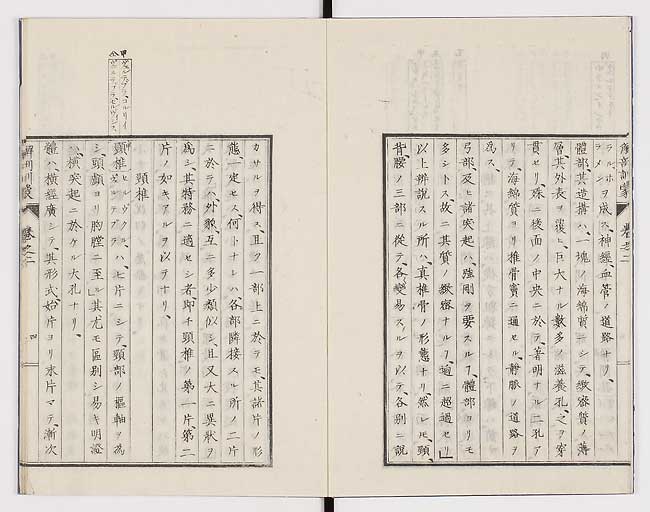 ラルホヲ成ス、神經血管ノ道路ナリ、
體部、其造搆ハ、一塊ノ海綿質ニシテ、緻密質ノ薄
層、其外表ヲ覆ヒ、巨大ナル數多ノ滋養孔、之ヲ穿
貫セリ、殊ニ後面ノ中央ニ於テ、著明ナル二孔ア
リテ、海綿質ヨリ推骨竇ニ通セル、靜脈ノ道路ヲ
為ス、
弓部及ヒ諸突起ハ、強剛ヲ要スルヿ、體部ヨリモ
多シトス、故ニ其質ノ緻密ナルヿ、遙ニ超過セリ」
以上辨説スル所ハ、真椎骨ノ形態ナリ、然レモ、頸、
背、腰ノ三部ニ從テ、各變易スルヲ以テ、各別ニ説
解剖訓蒙
卷之二
カサルヲ得ス、且ツ一部上ニ於ラモ、其諸片ノ形
態、一定セス、何トナレハ、各部隣接スル所ノ二片
ニ於テハ、外貌、互ニ多少類似シ、且又大ニ異狀ヲ
為シ、其特務ニ適セシ者、即チ頸椎ノ第一片、第二
片ノ如キアルヲ以テナリ、
頸椎
頸椎ハ、七片ニシテ、頸部ノ樞軸ヲ為
シ、頭顱ヨリ胸膛ニ至ル」其尤モ區別シ易キ明證
ハ、橫突起ニ於ケル大孔ナリ、
體ハ、橫經廣シテ、其形式、始片ヨリ末片マテ、漸次
解剖訓蒙
卷之二
四